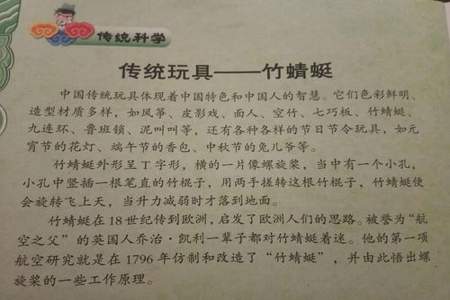 传统科学
传统玩具——竹蜻蜓
中国传统玩具体现着中国特色和中国人的智慧。它们色彩鲜明、
造型材质多样，如风筝、皮影戏、面人、空竹、七巧板、竹蜻蜓、
九连环、鲁班锁、泥叫叫等，还有各种各样的节日节令玩具，如元
宵节的花灯、端午节的香包、中秋节的兔儿爷等。
竹蜻蜓外形呈丁字形，横的一片像螺旋桨，当中有一个小孔，
小孔中竖插一根笔直的竹棍子，用两手搓转这根竹棍子，竹蜻蜓便
会旋转飞上天，当升力减弱时才落到地面。
竹蜻蜓在18世纪传到欧洲，启发了欧洲人们的思路。被誉为“航
空之父”的英国人乔治·凯利一辈子都对竹蜻蜓着迷。他的第一项
航空研究就是在1796年仿制和改造了“竹蜻蜓”，并由此悟出螺
旋桨的一些工作原理。